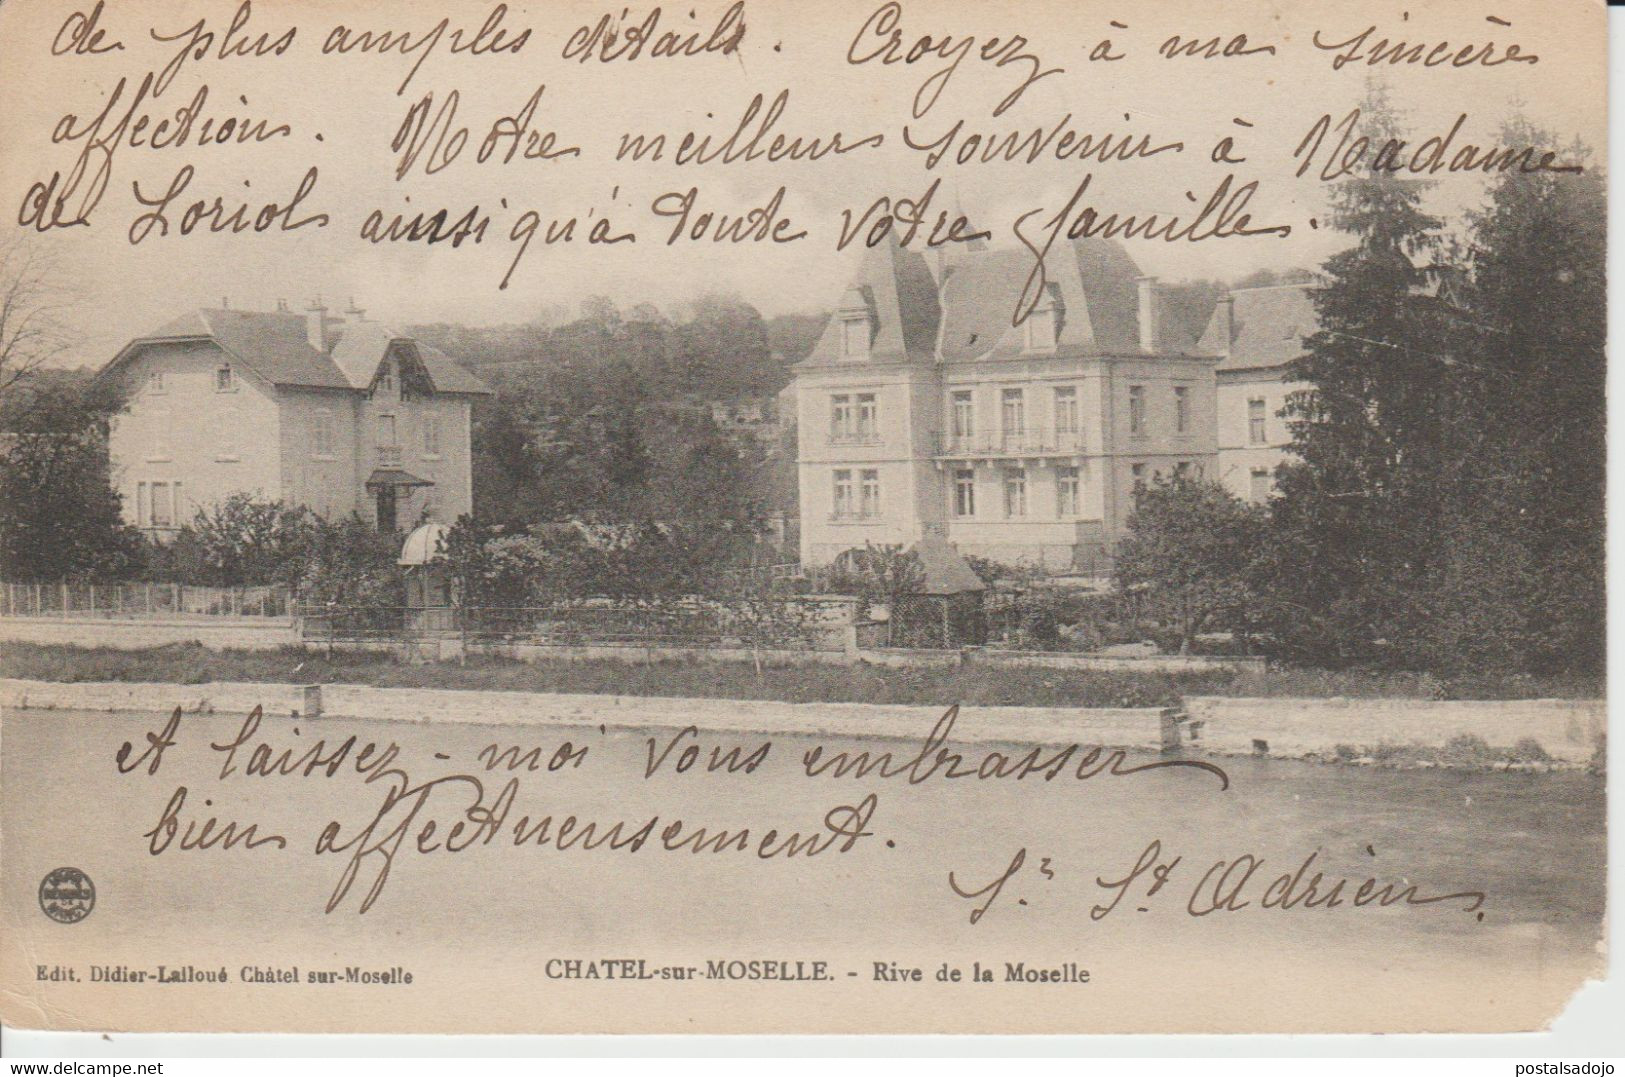 de plus amples détails. Croyez à ma sincère
affection. Notre meilleur souvenir à Madame
de Loriol ainsi qu'à toute votre famille.
Et laissez-moi vous embrasser
bien affectueusement.
Sr St Adrien.
Edit. Didier-Lalloué Châtel sur-Moselle
CHATEL-sur-MOSELLE. - Rive de la Moselle
postalsadojo
Delcampe.net